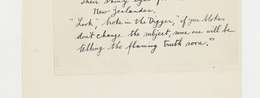 New Zealander.
"Look," broke in the Digger, "if you blokes
don't change the subject, some one will be
telling the flaming truth soon."